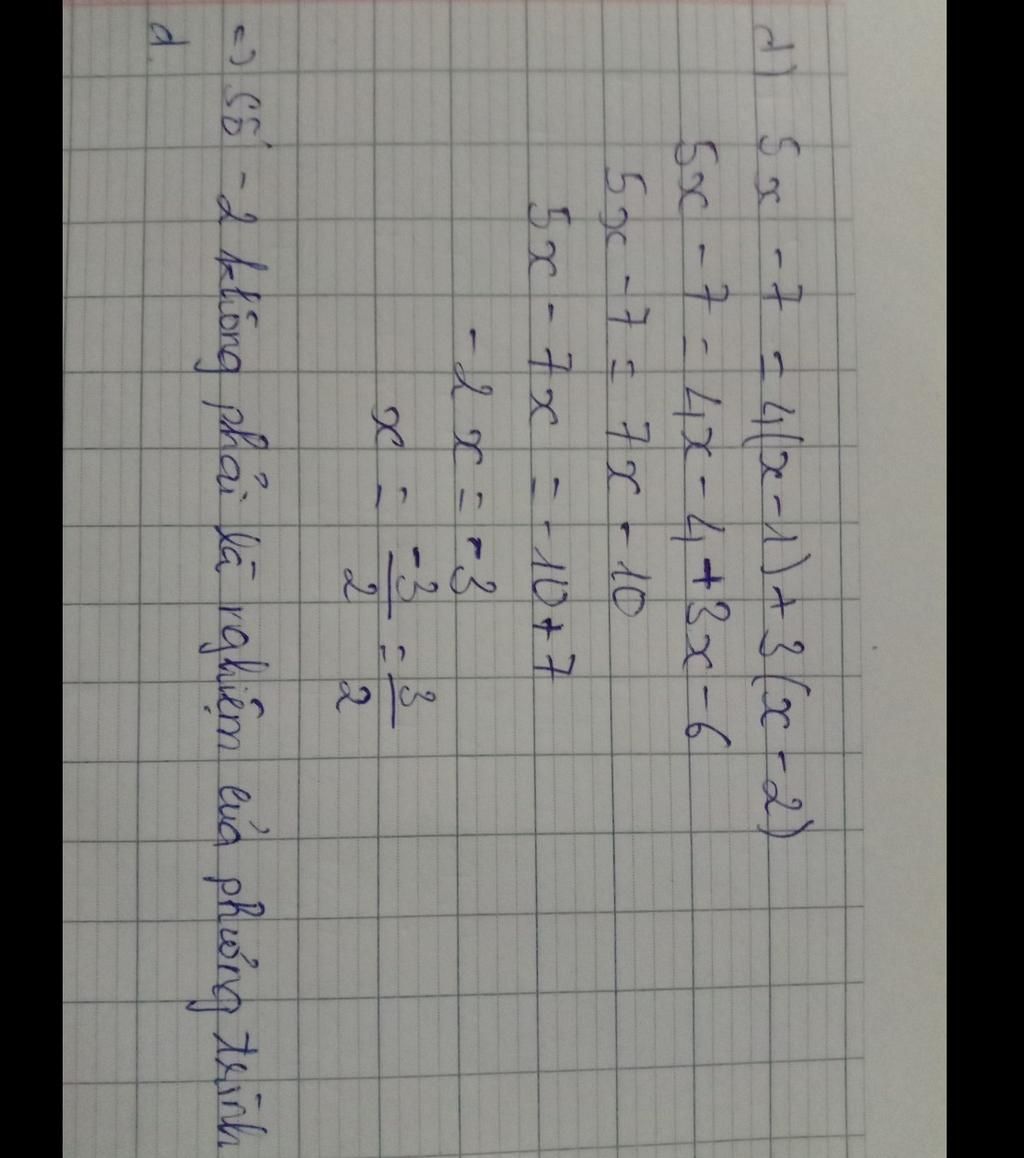 d) 5x - 7 = 4(x - 1) + 3(x - 2)
5x - 7 = 4x - 4 + 3x - 6
5x - 7 = 7x - 10
5x - 7x = -10 + 7
-2x = -3
x = -3/2 = 3/2
=> Số -2 không phải là nghiệm của phương trình
d.